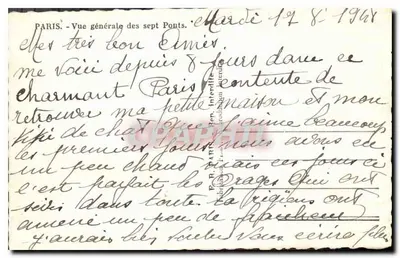 PARIS. - Vue générale des sept Ponts.
Mardi 17 8 1968
Mes très bon Amis.
me voici depuis 8 jours dans ce
charmant Paris contente de
retrouver ma petite maison et mon
kiki de chat que j'aime beaucoup
les premiers jours nous avons eu
un peu chaud mais ces jours ci
c'est parfait les orages qui ont
dans toute la ont
amené un peu de fraicheur
j'aurais très voulu vous écrire plus